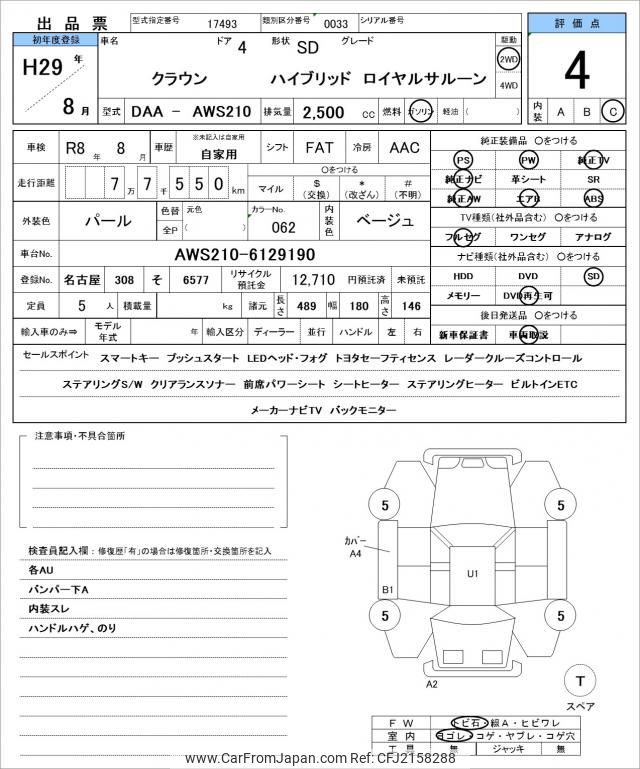 出品票
型式指定番号 17493 類別区分番号 0033 シリアル番号
評価点
4
内装 A B C
初年度登録
H29 年
8 月
車名 ドア 4 形状 SD グレード
クラウン ハイブリッド ロイヤルサルーン
駆動
2WD
4WD
型式 DAA － AWS210 排気量 2,500 cc 燃料 ガソリン 軽油 ( )
車検 R8 年 8 月 車歴 ※未記入は自家用 自家用 シフト FAT 冷房 AAC
走行距離 7 万 7 千 5 5 0 km
〇をつける
マイル $ (交換) * (改ざん) # (不明)
外装色 パール 色替 元色 全P ( ) カラーNo. 062 内装色 ベージュ
車台No. AWS210-6129190
登録No. 名古屋 308 そ 6577 リサイクル預託金 12,710 円預託済 未預託
定員 5 人 積載量 kg 諸元 長さ 489 幅 180 高さ 146
輸入車のみ⇒ モデル年式 年 輸入区分 ディーラー 並行 ハンドル 左 右
純正装備品 〇をつける
PS PW 純正TV
純正ナビ 革シート SR
純正AW エアB ABS
TV種類(社外品含む) 〇をつける
フルセグ ワンセグ アナログ
ナビ種類(社外品含む) 〇をつける
HDD DVD SD
メモリー DVD再生可
後日発送品 〇をつける
新車保証書 車両取説
セールスポイント スマートキー プッシュスタート LEDヘッド・フォグ トヨタセーフティセンス レーダークルーズコントロール
ステアリングS/W クリアランスソナー 前席パワーシート シートヒーター ステアリングヒーター ビルトインETC
メーカーナビTV バックモニター
注意事項・不具合箇所
検査員記入欄：修復歴「有」の場合は修復箇所・交換箇所を記入
各AU
バンパー下A
内装スレ
ハンドルハゲ、のり
5
5
カバー
A4
U1
B1
5
5
A2
T
スペア
ＦＷ トビ石・線A・ヒビワレ
室内 ヨゴレ・コゲ・ヤブレ・コゲ穴
工具 無 ジャッキ 無
www.CarFromJapan.com Ref: CFJ2158288